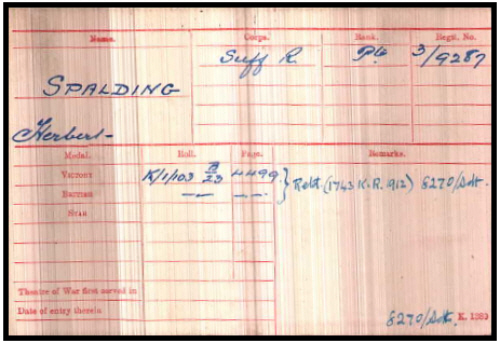 Name. Corps. Rank. Regtl. No.
Suff R. Pte 3/9287
SPALDING
Herbert
Medal. Roll. Page. Remarks.
VICTORY K/1/103 B 23 4499 } Retd. (1743 K.R. 1912) 8270/Adt.
BRITISH — — —..—
STAR
Theatre of War first served in
Date of entry therein
8270/Adt. K. 1380